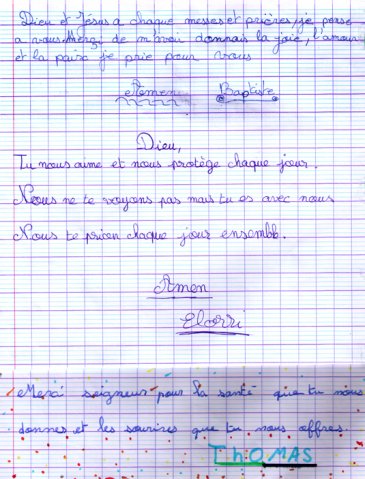 Dieu et Jésus a chaque messes et prières, je pense
a vous. Merçi de m'avoir donnais la joie, l'amour
et la paix je prie pour vous
Amen Baptiste
Dieu,
Tu nous aime et nous protège chaque jour.
Nous ne te voyons pas mais tu es avec nous
Nous te prion chaque jour ensemble.
Amen
Elorri
Merci seigneur pour la santé que tu nous
donnes et les sourires que tu nous offres.
ThOMAS